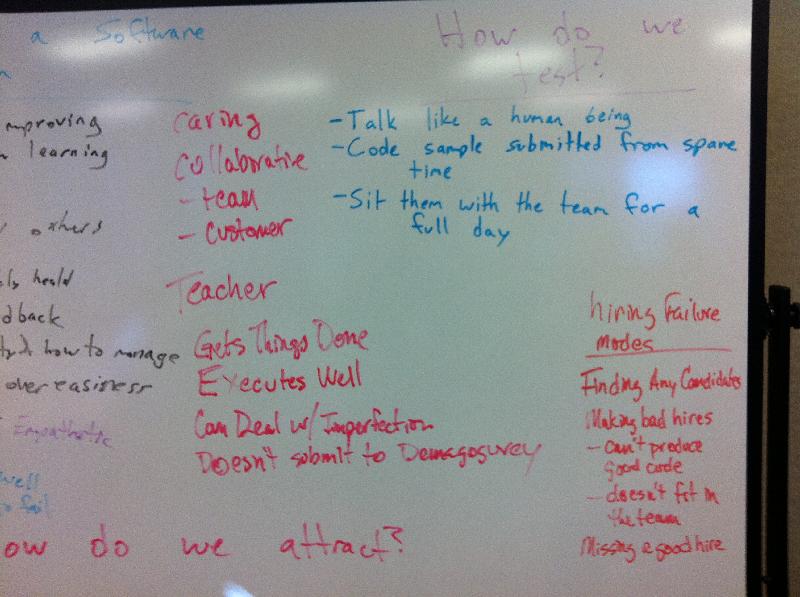 a Software
How do we
test?
mproving
learning
others
held
dback
how to manage
over easiness
Empathetic
well
to fail
caring
collaborative
- team
- customer
Teacher
Gets Things Done
Executes Well
Can Deal w/ Imperfection
Doesn't submit to Demagoguery
- Talk like a human being
- Code sample submitted from spare
time
- Sit them with the team for a
full day
hiring Failure
modes
Finding Any Candidates
Making bad hires
- can't produce
good code
- doesn't fit in
the team
Missing a good hire
ow do we attract?